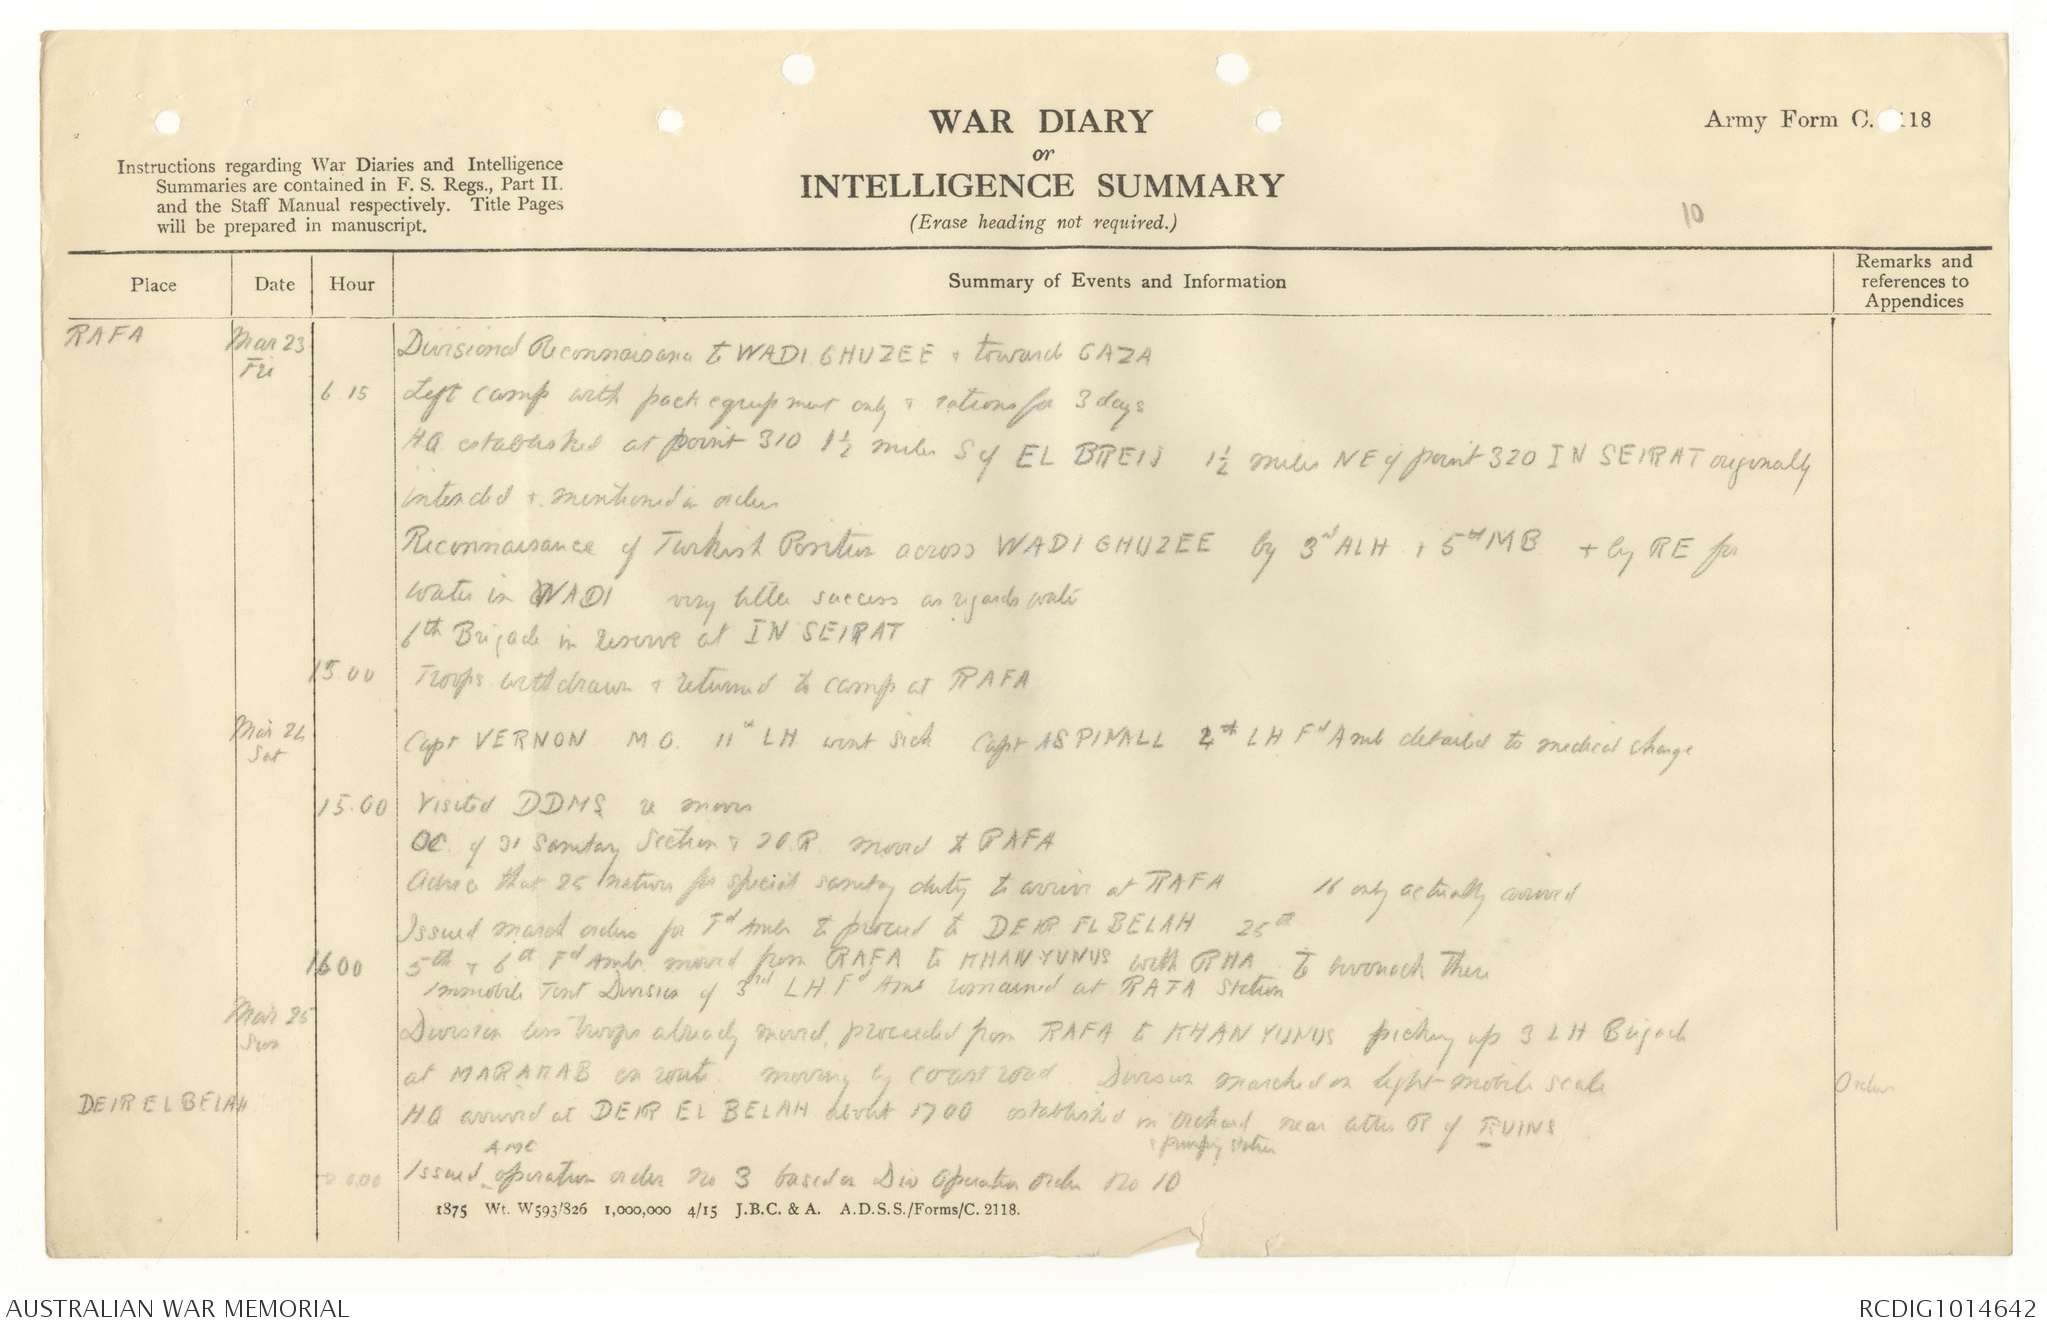 WAR DIARY
or
INTELLIGENCE SUMMARY
(Erase heading not required.)
Army Form C. 118
Instructions regarding War Diaries and Intelligence
Summaries are contained in F. S. Regs., Part II.
and the Staff Manual respectively. Title Pages
will be prepared in manuscript.
10
Place Date Hour Summary of Events and Information Remarks and references to Appendices
RAFA Mar 23 Fri Divisional Reconnaisance to WADI GHUZEE + toward GAZA
6 15 Left camp with pack equipment only + rations for 3 days
HQ established at point 310 1½ miles S of EL BREIJ 1½ miles NE of point 320 IN SEIRAT originally
intended + mentioned in orders
Reconnaisance of Turkish Position across WADI GHUZEE by 3rd ALH + 5th MB + by RE for
water in WADI very little success as regards water
6th Brigade in reserve at IN SEIRAT
15.00 Troops withdrawn + returned to camp at RAFA
Mar 24 Sat Capt VERNON M O. 11th LH went sick Capt ASPINALL 4th LH Fd Amb detailed to medical charge
15.00 Visited DDMS re moves
OC. of 31 Sanitary Section + 20 R. moved to RAFA
Advice that 25 natives for special sanitary duty to arrive at RAFA 16 only actually arrived
Issued march orders for Fd Ambs to proceed to DEIR EL BELAH 25th
1600 5th + 6th Fd Ambs moved from RAFA to KHAN YUNUS with RHA to bivouack there
Immobile Tent Division of 3rd LH Fd Amb remained at RAFA Station
Mar 25 Sun Division less troops already moved, proceeded from RAFA to KHAN YUNUS picking up 3 LH Brigade
at MARAKAB en route. moving by coast road. Division marched on light mobile scale Orders
DEIR EL BELAH HQ arrived at DEIR EL BELAH about 1700 established in orchard near letter R of RUINS
+ pumping station
AMC
2000 Issued operation order No 3 based on Div Operation Order No 10
1875 Wt. W593/826 1,000,000 4/15 J.B.C. & A. A.D.S.S./Forms/C. 2118.
AUSTRALIAN WAR MEMORIAL
RCDIG1014642